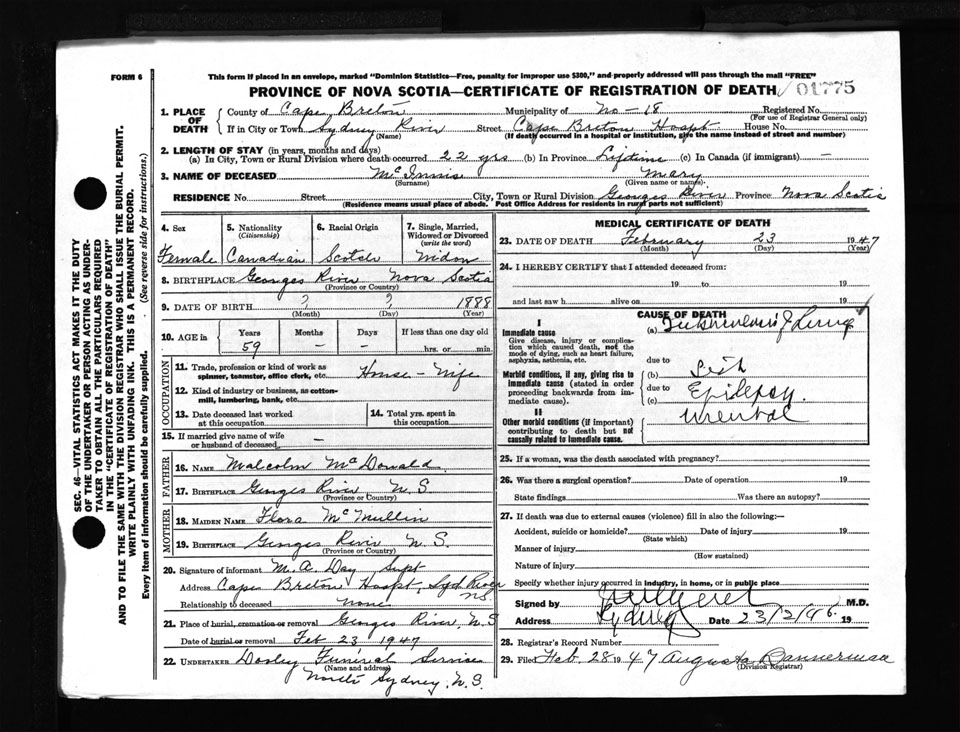 FORM 6
This form if placed in an envelope, marked "Dominion Statistics—Free, penalty for improper use $300," and properly addressed will pass through the mail "FREE"
PROVINCE OF NOVA SCOTIA—CERTIFICATE OF REGISTRATION OF DEATH 01775
1. PLACE OF DEATH
County of Cape Breton Municipality of No-18 Registered No.
(For use of Registrar General only)
If in City or Town Sydney River Street Cape Breton Hospt. House No.
(Name) (If death occurred in a hospital or institution, give the name instead of street and number)
2. LENGTH OF STAY (in years, months and days)
(a) In City, Town or Rural Division where death occurred 22 yrs (b) In Province Lifetime (c) In Canada (if immigrant) —
3. NAME OF DECEASED McInnis Mary
(Surname) (Given name or names)
RESIDENCE No. Street City, Town or Rural Division Georges River Province Nova Scotia
(Residence means usual place of abode. Post Office Address for residents in rural parts not sufficient)
4. Sex
Female
5. Nationality
(Citizenship)
Canadian
6. Racial Origin
Scotch
7. Single, Married, Widowed or Divorced
(write the word)
Widow
8. BIRTHPLACE Georges River Nova Scotia
(Province or Country)
9. DATE OF BIRTH ? ? 1888
(Month) (Day) (Year)
10. AGE in
Years Months Days If less than one day old
59 – – hrs. or min.
OCCUPATION
11. Trade, profession or kind of work as spinner, teamster, office clerk, etc. House-Wife
12. Kind of industry or business, as cotton-mill, lumbering, bank, etc.
13. Date deceased last worked at this occupation
14. Total yrs. spent in this occupation
15. If married give name of wife or husband of deceased —
FATHER
16. NAME Malcolm McDonald
17. BIRTHPLACE Georges River N.S.
(Province or Country)
MOTHER
18. MAIDEN NAME Flora McMullin
19. BIRTHPLACE Georges River N.S.
(Province or Country)
20. Signature of informant M. A. Day Supt
Address Cape Breton Hospt, Syd River NS.
Relationship to deceased none
21. Place of burial, cremation or removal Georges River, N.S
Date of burial or removal Feb 23 1947
22. UNDERTAKER Dooley Funeral Service
(Name and address)
North Sydney, N.S.
MEDICAL CERTIFICATE OF DEATH
23. DATE OF DEATH February 23 1947
(Month) (Day) (Year)
24. I HEREBY CERTIFY that I attended deceased from:
19 to 19
and last saw h alive on 19
CAUSE OF DEATH
I
Immediate cause
Give disease, injury or complication which caused death, not the mode of dying, such as heart failure, asphyxia, asthenia, etc.
(a)
due to
Morbid conditions, if any, giving rise to immediate cause (stated in order proceeding backwards from immediate cause).
(b)
due to
(c) Epilepsy
II
Other morbid conditions (if important) contributing to death but not causally related to immediate cause.
25. If a woman, was the death associated with pregnancy?
26. Was there a surgical operation? Date of operation 19
State findings Was there an autopsy?
27. If death was due to external causes (violence) fill in also the following:—
Accident, suicide or homicide? Date of injury 19
(State which)
Manner of injury
(How sustained)
Nature of injury
Specify whether injury occurred in industry, in home, or in public place
Signed by M.D.
Address Sydney Date 23/2/46. 19
28. Registrar's Record Number
29. Filed Feb. 28 1947 Augusta Bannerman
(Division Registrar)
SEC. 46—VITAL STATISTICS ACT MAKES IT THE DUTY
OF THE UNDERTAKER OR PERSON ACTING AS UNDER-
TAKER TO OBTAIN ALL THE PARTICULARS REQUIRED
IN THE "CERTIFICATE OF REGISTRATION OF DEATH"
AND TO FILE THE SAME WITH THE DIVISION REGISTRAR WHO SHALL ISSUE THE BURIAL PERMIT.
WRITE PLAINLY WITH UNFADING INK. THIS IS A PERMANENT RECORD.
Every item of information should be carefully supplied. (See reverse side for instructions.)